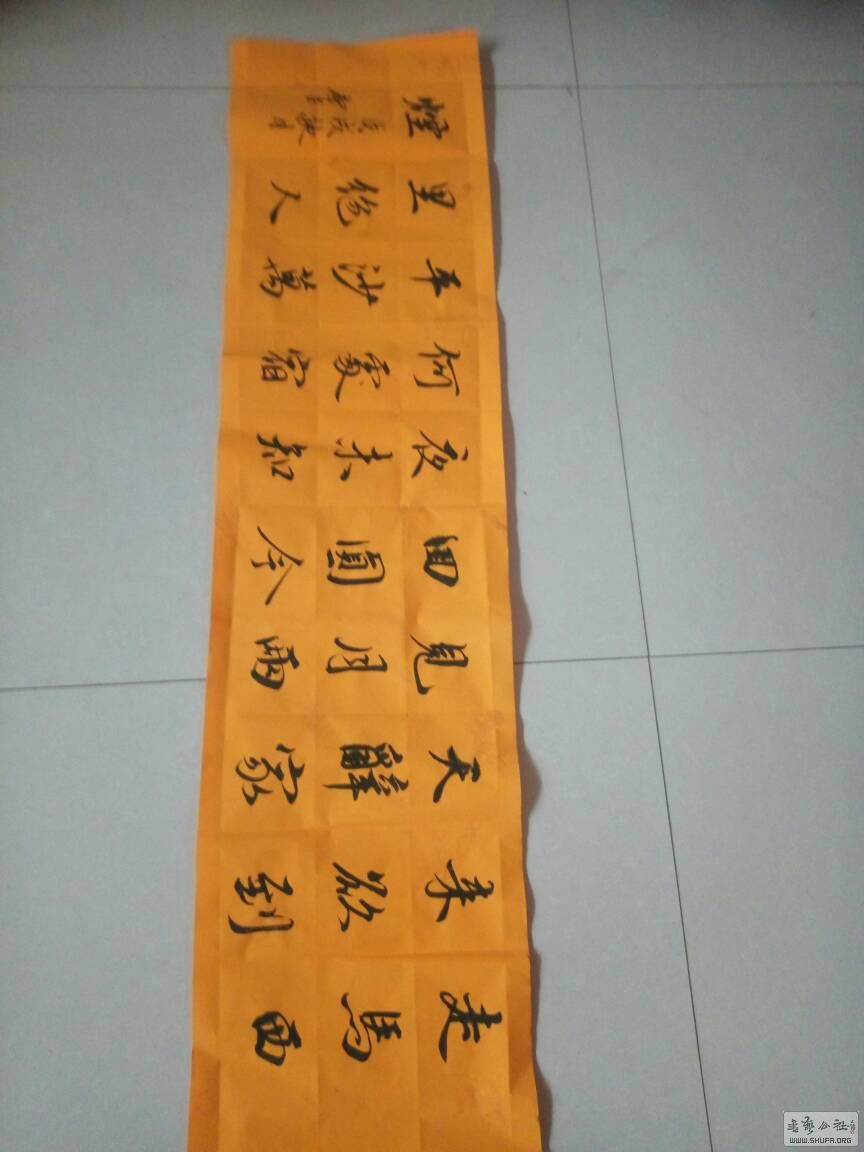 走馬西
来欲到
天辭家
見月兩
囬圓今
夜未知
何處宿
平沙萬
里絶人
煙
WWW.SHUFA.ORG